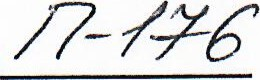 П-176